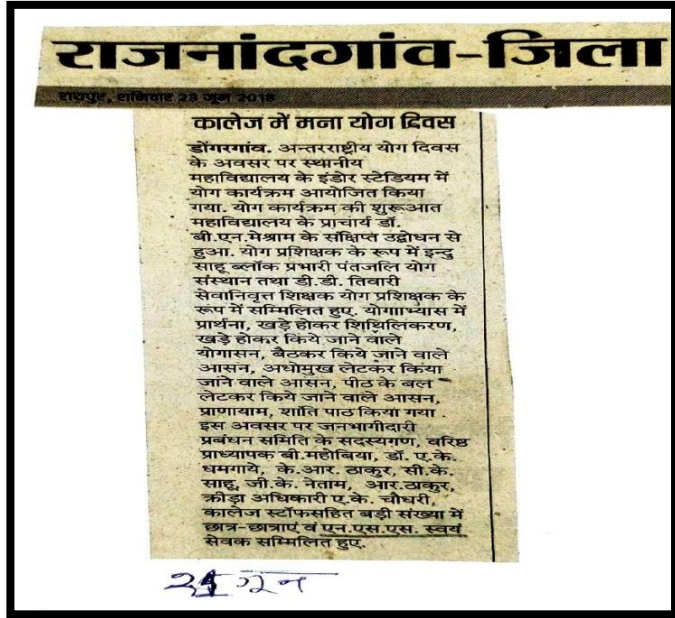 राजनांदगांव-जिला
रायपुर, शनिवार 23 जून 2018
कालेज में मना योग दिवस
डोंगरगांव. अन्तरराष्ट्रीय योग दिवस
के अवसर पर स्थानीय
महाविद्यालय के इंडोर स्टेडियम में
योग कार्यक्रम आयोजित किया
गया. योग कार्यक्रम की शुरूआत
महाविद्यालय के प्राचार्य डॉ.
बी.एन.मेश्राम के संक्षिप्त उद्बोधन से
हुआ. योग प्रशिक्षक के रूप में इन्दु
साहू ब्लॉक प्रभारी पंतजलि योग
संस्थान तथा डी.डी. तिवारी
सेवानिवृत्त शिक्षक योग प्रशिक्षक के
रूप में सम्मिलित हुए. योगााभ्यास में
प्रार्थना, खड़े होकर शिथिलिकरण,
खड़े होकर किये जाने वाले
योगासन, बैठकर किये जाने वाले
आसन, अधोमुख लेटकर किया
जाने वाले आसन, पीठ के बल
लेटकर किये जाने वाले आसन,
प्राणायाम, शांति पाठ किया गया .
इस अवसर पर जनभागीदारी
प्रबंधन समिति के सदस्यगण, वरिष्ठ
प्राध्यापक बी.महोबिया, डॉ. ए.के.
धमगाये, के.आर. ठाकुर, सी.के.
साहू, जी.के. नेताम, आर.ठाकुर,
क्रीड़ा अधिकारी ए.के. चौधरी,
कालेज स्टॉफसहित बड़ी संख्या में
छात्र-छात्राएं व एन.एस.एस. स्वयं
सेवक सम्मिलित हुए.
21 जून